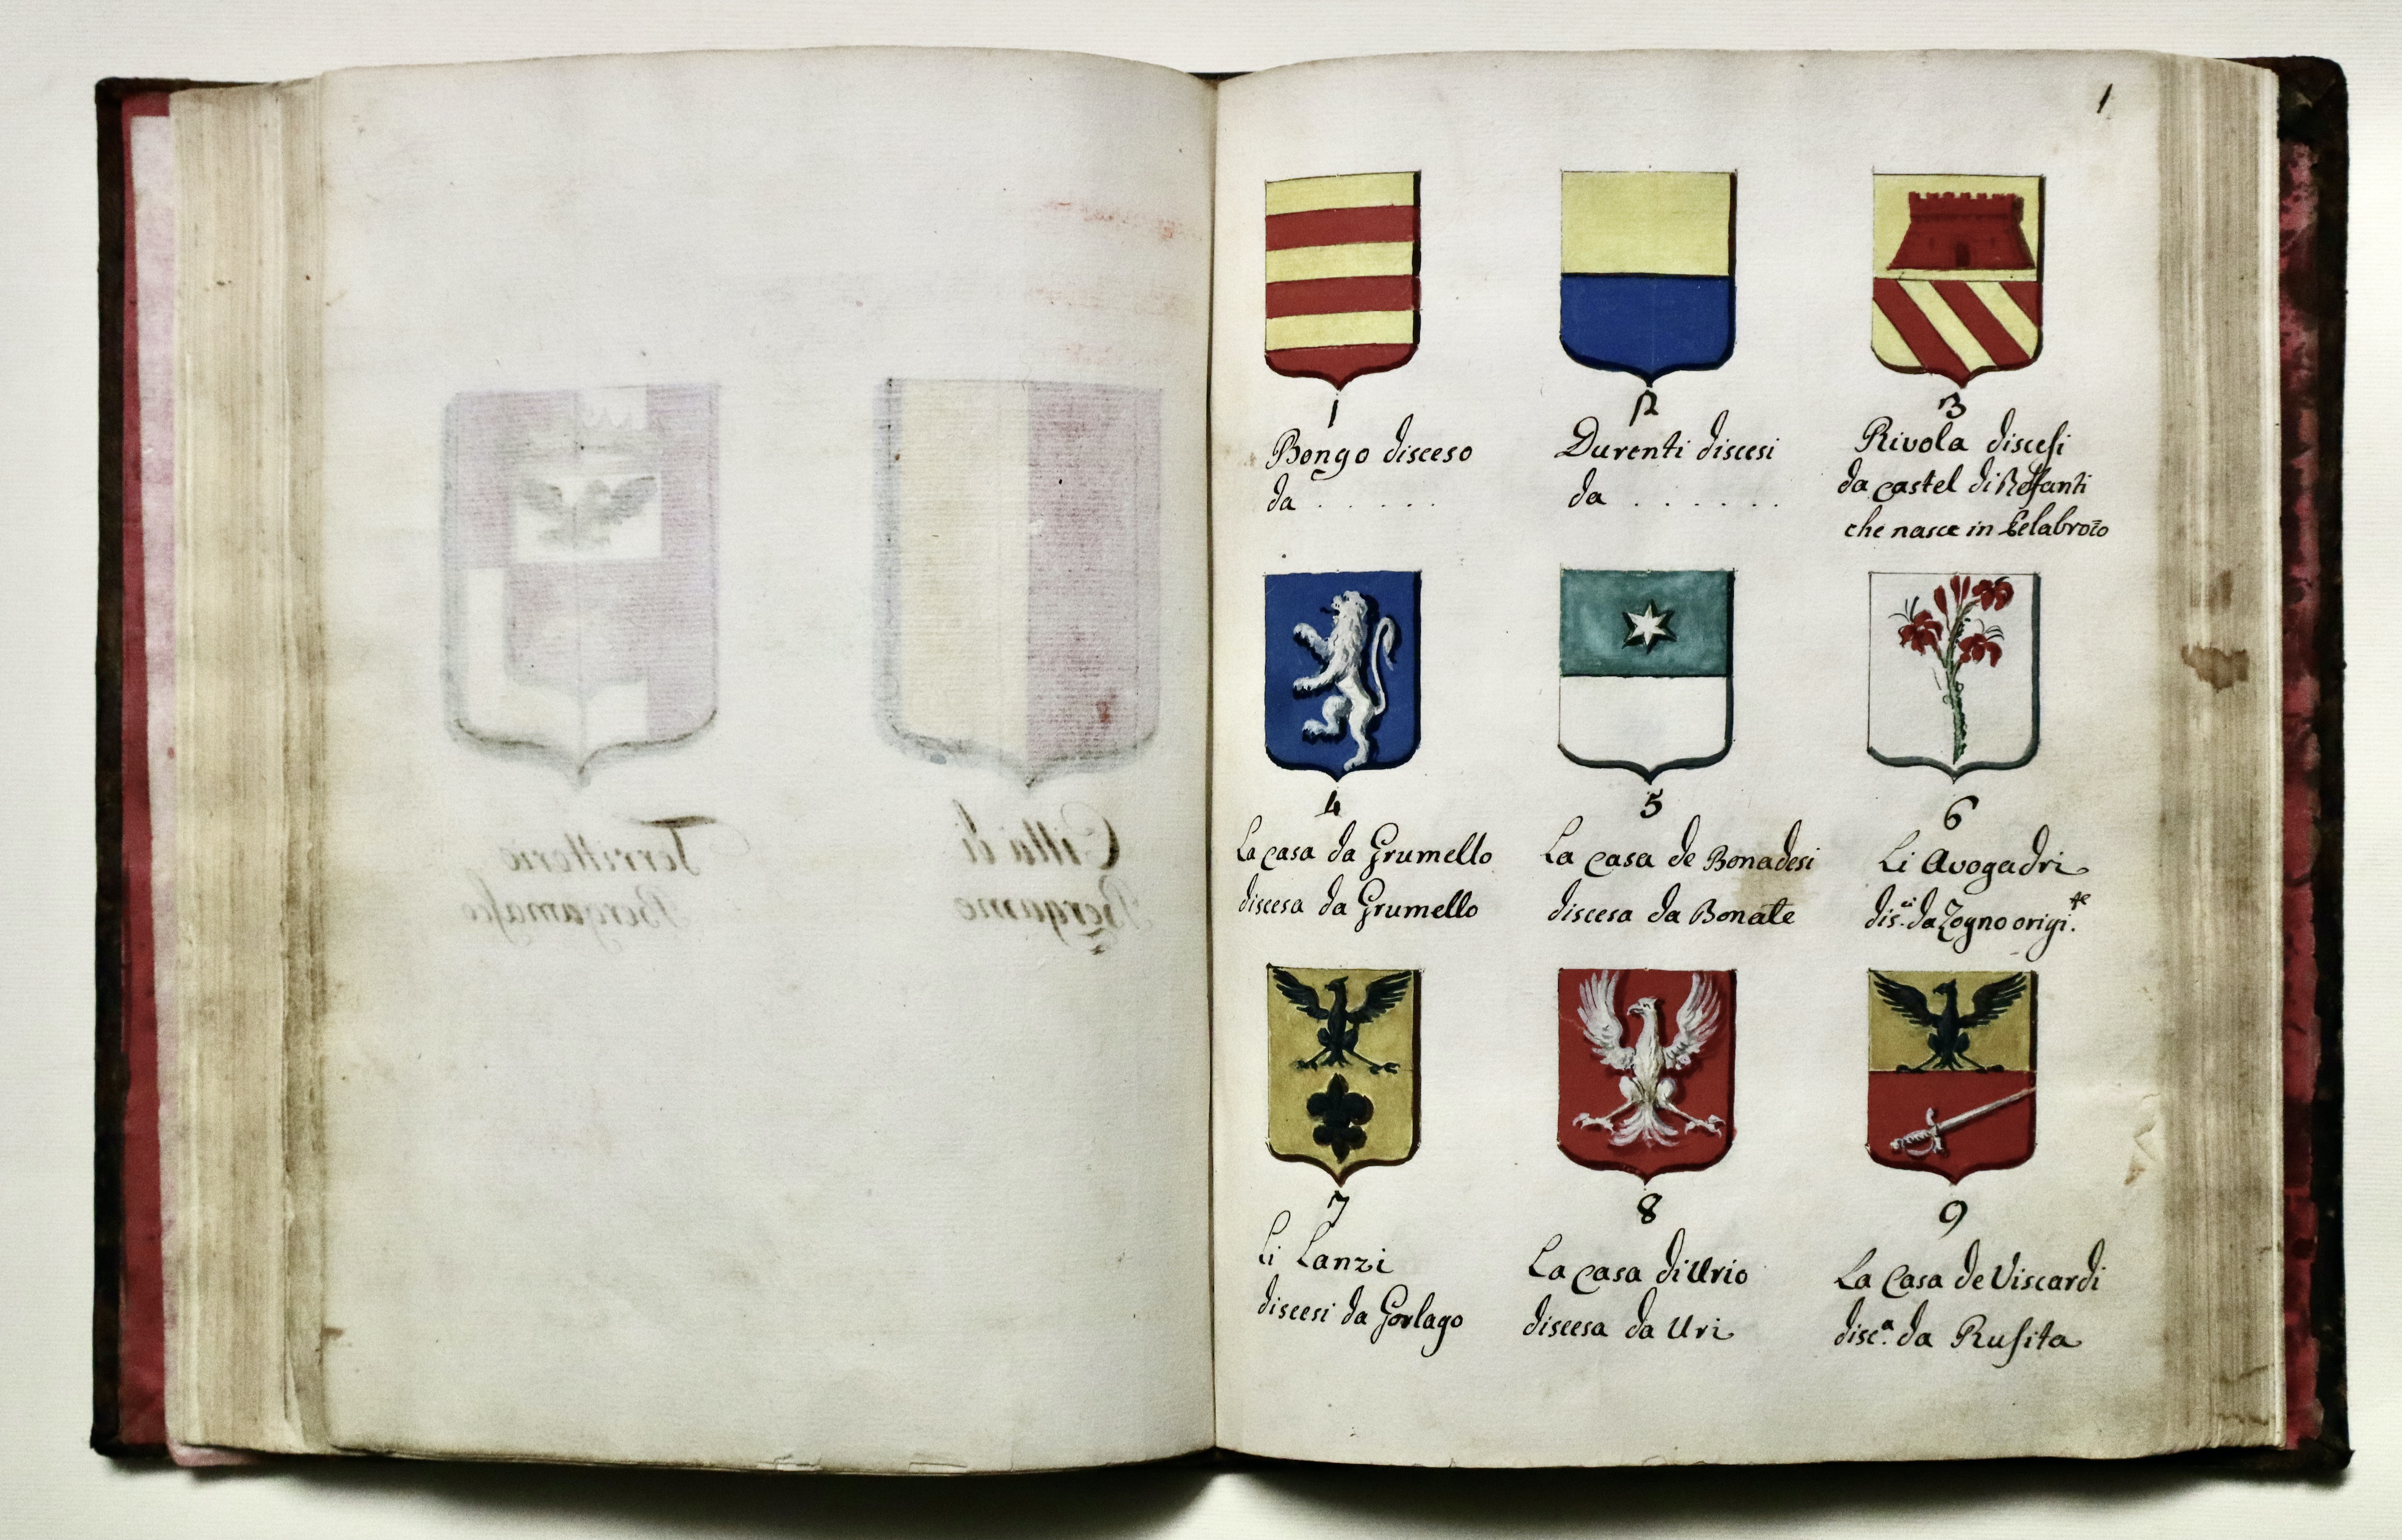 Città di
Bergamo
Territorio
Bergamasco
1
1
Bongo disceso
da . . . . . .
2
Durenti discesi
da . . . . . . .
3
Rivola discesi
da castel di
che nasce in
4
La casa da Grumello
discesa da Grumello
5
La casa de Bonadesi
discesa da Bonate
6
Li Avogadri
dis.ci da Zogno origi.te
7
Li Lanzi
discesi da Gorlago
8
La casa di Urio
discesa da Uri
9
La Casa de Viscardi
disc.a da Rusita